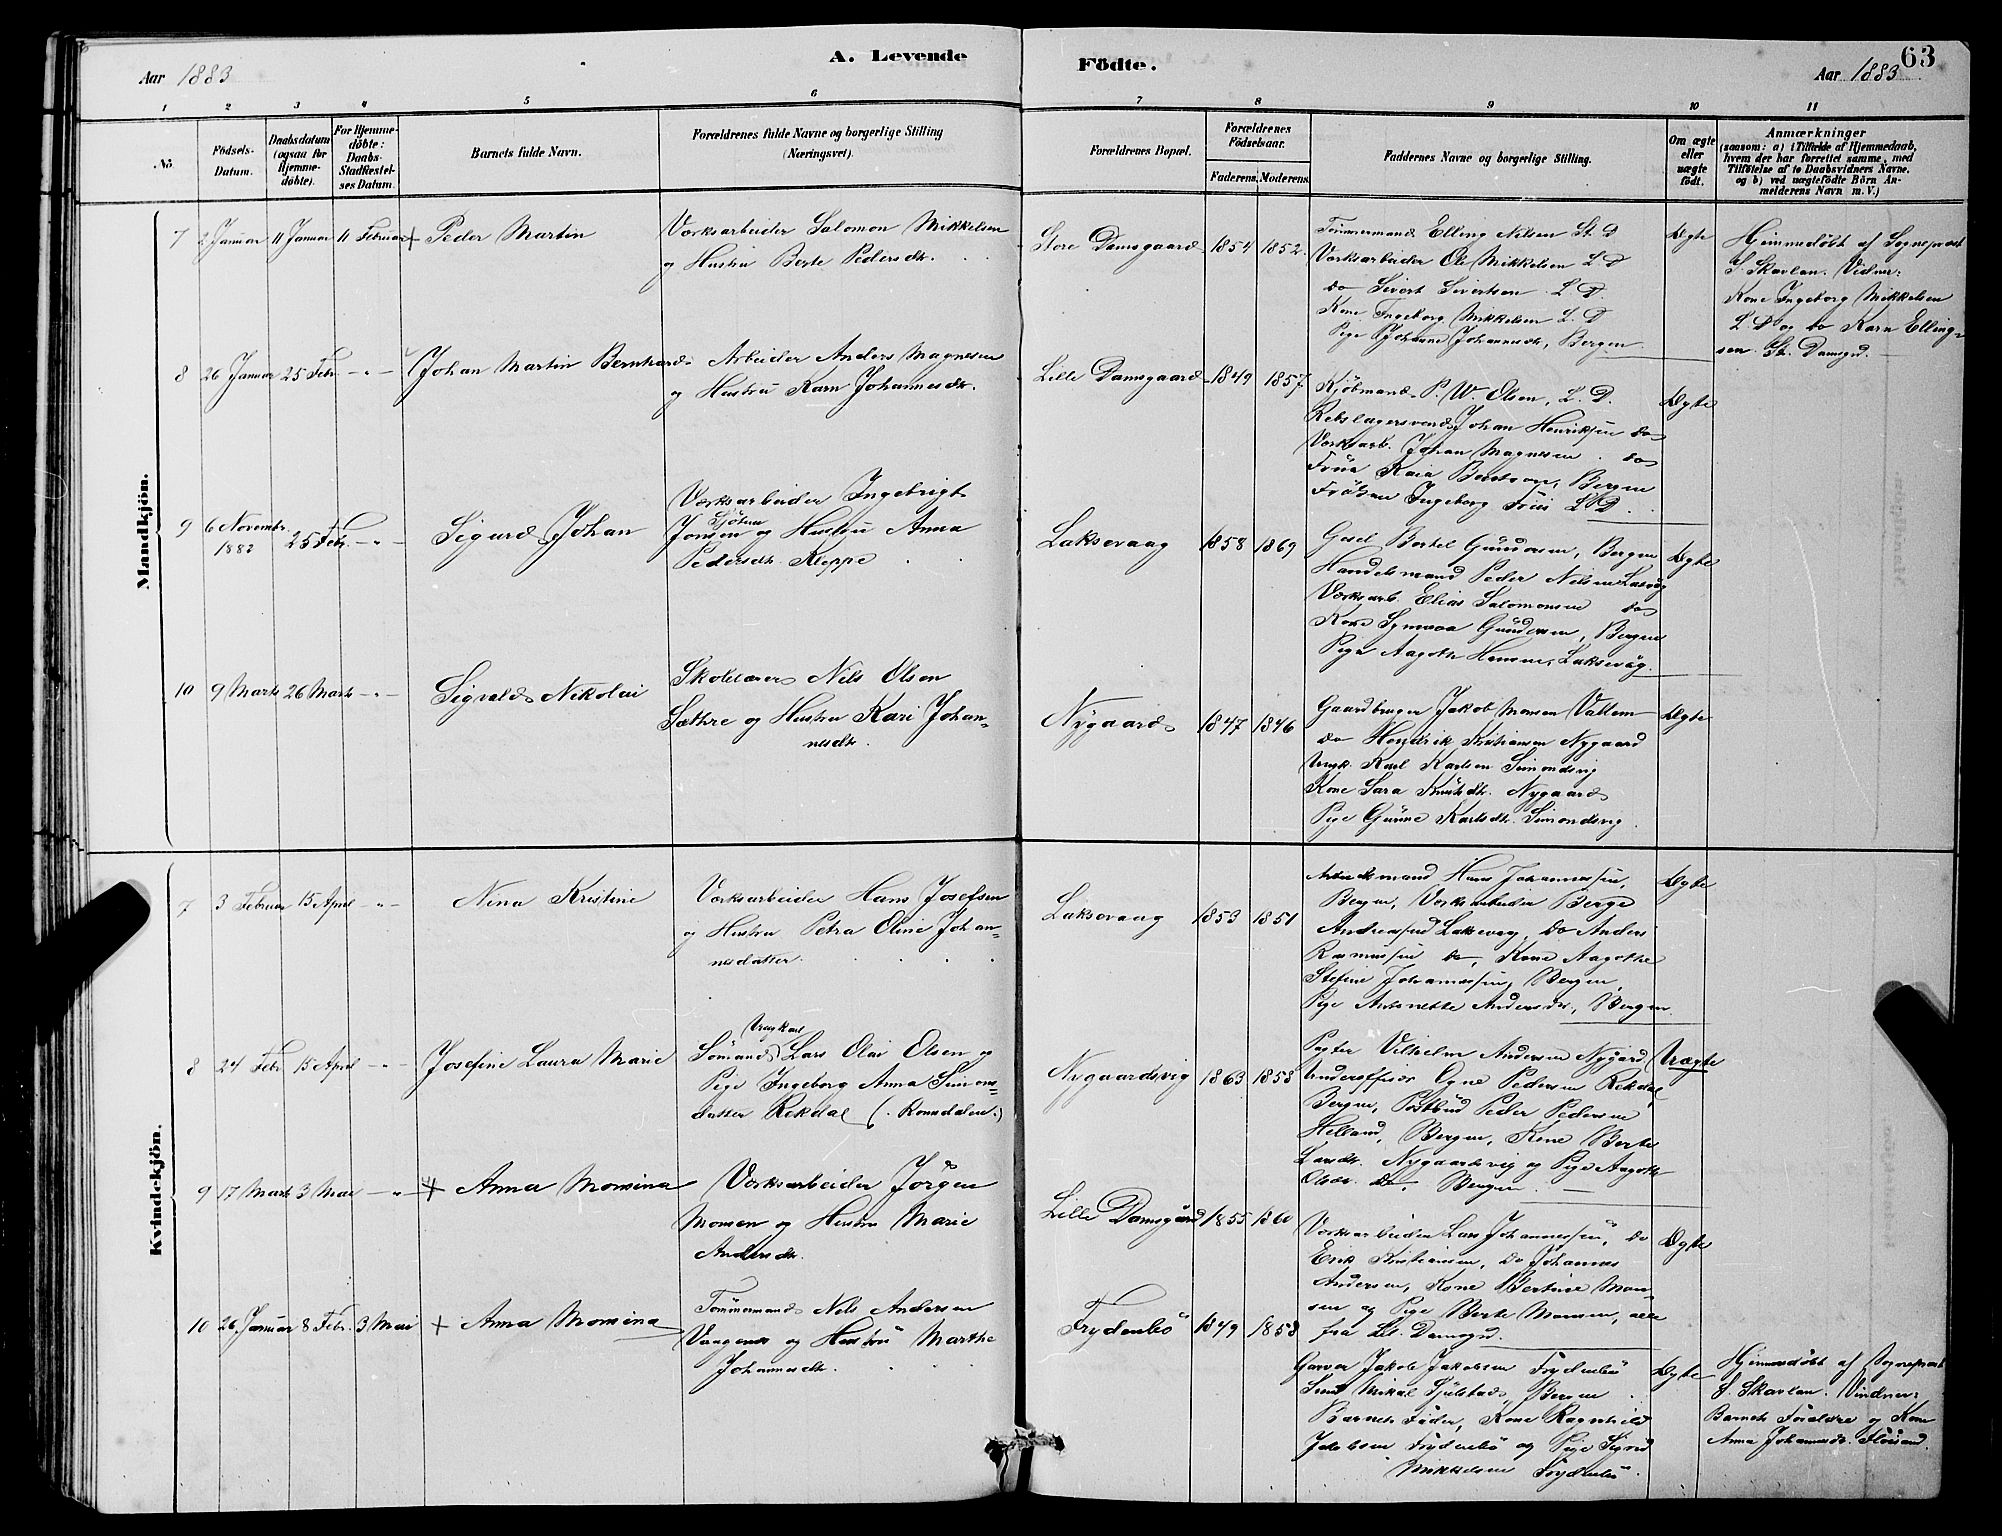 A. Levende
Födte.
63
Aar 1883
Aar 1883
1 2 3 4 5 6 7 8 9 10 11
No
Födsels-
Datum.
Daabsdatum
(ogsaa for
Hjemme-
döbte).
For Hjemme-
döbte:
Daabs-
Stadfæstel-
ses Datum.
Barnets fulde Navn.
Forældrenes fulde Navne og borgerlige Stilling
(Næringsvei).
Forældrenes Bopæl.
Forældrenes
Födselsaar.
Faderens. Moderens.
Faddernes Navne og borgerlige Stilling.
Om ægte
eller
uægte
födt.
Anmærkninger
(saasom: a) i Tilfælde af Hjemmedaab,
hvem der har forrettet samme, med
Tilföielse af to Daabsvidners Navne,
og b) ved uægtefödte Börn An-
melderens Navn m. V.)
Mandkjön.
7 2 Januar 11 Januar 11 Februar + Peder Martin
Værksarbeider Salomon Mikkelsen
og Hustru Berte Pedersdtr.
Store Damsgaard 1854 1852.
Tømmermand Elling Nilsen St. D
Værksarbeider Ole Mikkelsen L. D
do Sivert Sivertsen L. D.
Kone Ingeborg Mikkelsen L. D
Pige Johanne Johannesdtr, Bergen
Ægte
Hjemmedøbt af Sogneprest
S. Skavlan. Vidner:
Kone Ingeborg Mikkelsen
L. D og do Karn Elling-
sen. St. Damsgd.
8 26 Januar 25 Febr. - " - Johan Martin Bernhard
Arbeider Anders Magnesen
og Hustru Karn Johannesdtr.
Lille Damsgaard 1849 1857
Kjøbmand P. W. Olsen, L. D.
Rebslagersvend Johan Henriksen do
Værksarb. Johan Magnesen do
Frue Kaia Bertson, Bergen
Frøken Ingeborg Friis L. D.
Ægte
9 6 Novembr.
1882 25 Febr. - " - Sigurd Johan
Værksarbeider Ingebrigt
Jonsen og Hustru Anna
Pedersdtr. Kleppe
Laksevaag 1858 1869
Bertel Gundersen, Bergen
Handelsmand Peder Nilsen
Værksarb. Elias Salomonsen do
Kone Gundersen, Bergen
Pige Aagothe Hansen, Laksevåg.
Ægte
10 9 Marts 26 Marts - " - Sigvald Nikolai
Skolelærer Nils Olsen
Sæthre og Hustru Kari Johan-
nesdtr.
Nygaard 1847 1846
Gaardbruger Jakob Monsen Vallem
do Hendrik Kristiansen Nygaard
Ungk. Karl Karlsen Simondsvig
Kone Sara Knutsdtr. Nygaard
Pige Gurine Karlsdtr. Simondsvig
Ægte
Kvindekjön.
7 3 Februar 15 April - " - Nina Kristine
Værksarbeider Hans Josefsen
og Hustru Petra Oline Johan-
nesdatter.
Laksevaag 1853 1851
Arbeidsmand Hans Johannessen,
Bergen, Værksarbeider Berge
Andreassen Laksevaag, do Anders
Rasmussen do, Kone Aagothe
Stefine Johannessen, Bergen,
Pige Antonette Andersdtr., Bergen
Ægte
8 24 Febr 15 April - " - Josefine Laura Marie
Ungkarl
Sømand Lars Olai Olsen og
Pige Ingeborg Anna Simons-
datter Rekdal (. Romsdalen.)
Nygaardsvig 1863 1858
Vilhelm Andersen Nygaard
Underofficer Ogne Pedersen Rekdal,
Bergen, Postbud Peder Pedersen
Helland, Bergen, Kone Berte
Larsdtr. Nygaardsvig og Pige Aagothe
Bergen.
Uægte
9 17 Marts 3 Mai - " - + Anna Monsina
Værksarbeider Jörgen
Monsen og Hustru Marie
Andersdtr.
Lille Damsgård 1855 1860
Værksarbeider Lars Johannessen, do
Erik Kristiansen, do Johannes
Andersen, Kone Bertine Mon-
sen og Pige Berte Monsen, alle
fra Lil. Damsgd.
Ægte
10 26 Januar 8 Febr. 3 Mai + Anna Monsina
Tømmermand Nils Andersen
Vaagenes og Hustru Marthe
Johannesdtr.
Frydenbö 1849 1858
Garver Jakob Jakobsen Frydenbö
Smed Mikal Bergen
Barnets Fader, Kone Ragnhild
Jakobsen Frydenbö og Pige Sigrid
Mikkelsen Frydenbö
Ægte
Hjemmedøbt af Sogneprest
S. Skavlan. Vindner:
Barnets Forældre og Kone
Anna Johannesdtr.